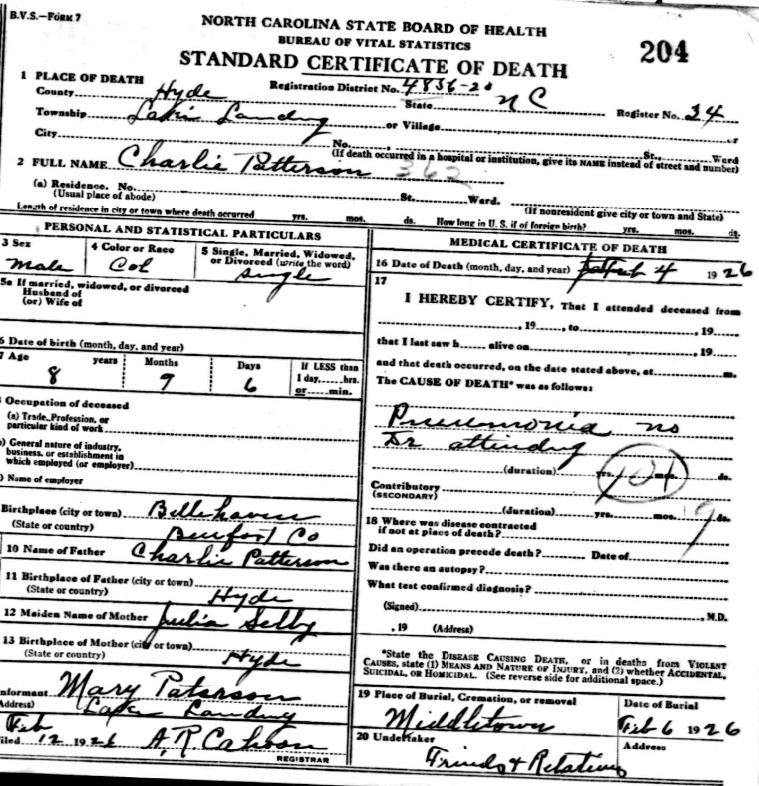 B.V.S.—FORM 7
NORTH CAROLINA STATE BOARD OF HEALTH
BUREAU OF VITAL STATISTICS
STANDARD CERTIFICATE OF DEATH
204
1 PLACE OF DEATH
County Hyde Registration District No. 4836-20 State N C Register No. 34
Township Lake Landing or Village or
City No. St., Ward
(If death occurred in a hospital or institution, give its NAME instead of street and number)
2 FULL NAME Charlie Patterson 362
(a) Residence. No. St. Ward.
(Usual place of abode) (If nonresident give city or town and State)
Length of residence in city or town where death occurred yrs. mos. ds. How long in U. S. if of foreign birth? yrs. mos. ds.
PERSONAL AND STATISTICAL PARTICULARS
3 Sex
Male
4 Color or Race
Col
5 Single, Married, Widowed,
or Divorced (write the word)
Single
5a If married, widowed, or divorced
Husband of
(or) Wife of
6 Date of birth (month, day, and year)
7 Age years Months Days If LESS than
8 9 6 1 day, hrs.
or min.
Occupation of deceased
(a) Trade, Profession, or
particular kind of work
(b) General nature of industry,
business, or establishment in
which employed (or employer)
Name of employer
Birthplace (city or town) Bellehaven
(State or country) Beufort Co
10 Name of Father Charlie Patterson
11 Birthplace of Father (city or town)
(State or country) Hyde
12 Maiden Name of Mother Julia Selby
13 Birthplace of Mother (city or town)
(State or country) Hyde
Informant Mary Paterson
Address) Lake Landing
Feb
Filed 12 1926 A. R. Cahoon
REGISTRAR
MEDICAL CERTIFICATE OF DEATH
16 Date of Death (month, day, and year) Feb 4 1926
17
I HEREBY CERTIFY, That I attended deceased from
, 19 , to , 19
that I last saw h alive on , 19
and that death occurred, on the date stated above, at m.
The CAUSE OF DEATH* was as follows:
Pneumonia no
Dr attending
(duration) yrs. mos. ds.
101
Contributory
(SECONDARY)
(duration) yrs. mos. 9 ds.
18 Where was disease contracted
if not at place of death?
Did an operation precede death? Date of
Was there an autopsy?
What test confirmed diagnosis?
(Signed) , M.D.
, 19 (Address)
*State the DISEASE CAUSING DEATH, or in deaths from VIOLENT
CAUSES, state (1) MEANS AND NATURE OF INJURY, and (2) whether ACCIDENTAL,
SUICIDAL, OR HOMICIDAL. (See reverse side for additional space.)
19 Place of Burial, Cremation, or removal
Middletown
Date of Burial
Feb 6 1926
20 Undertaker
Friends & Relatives
Address